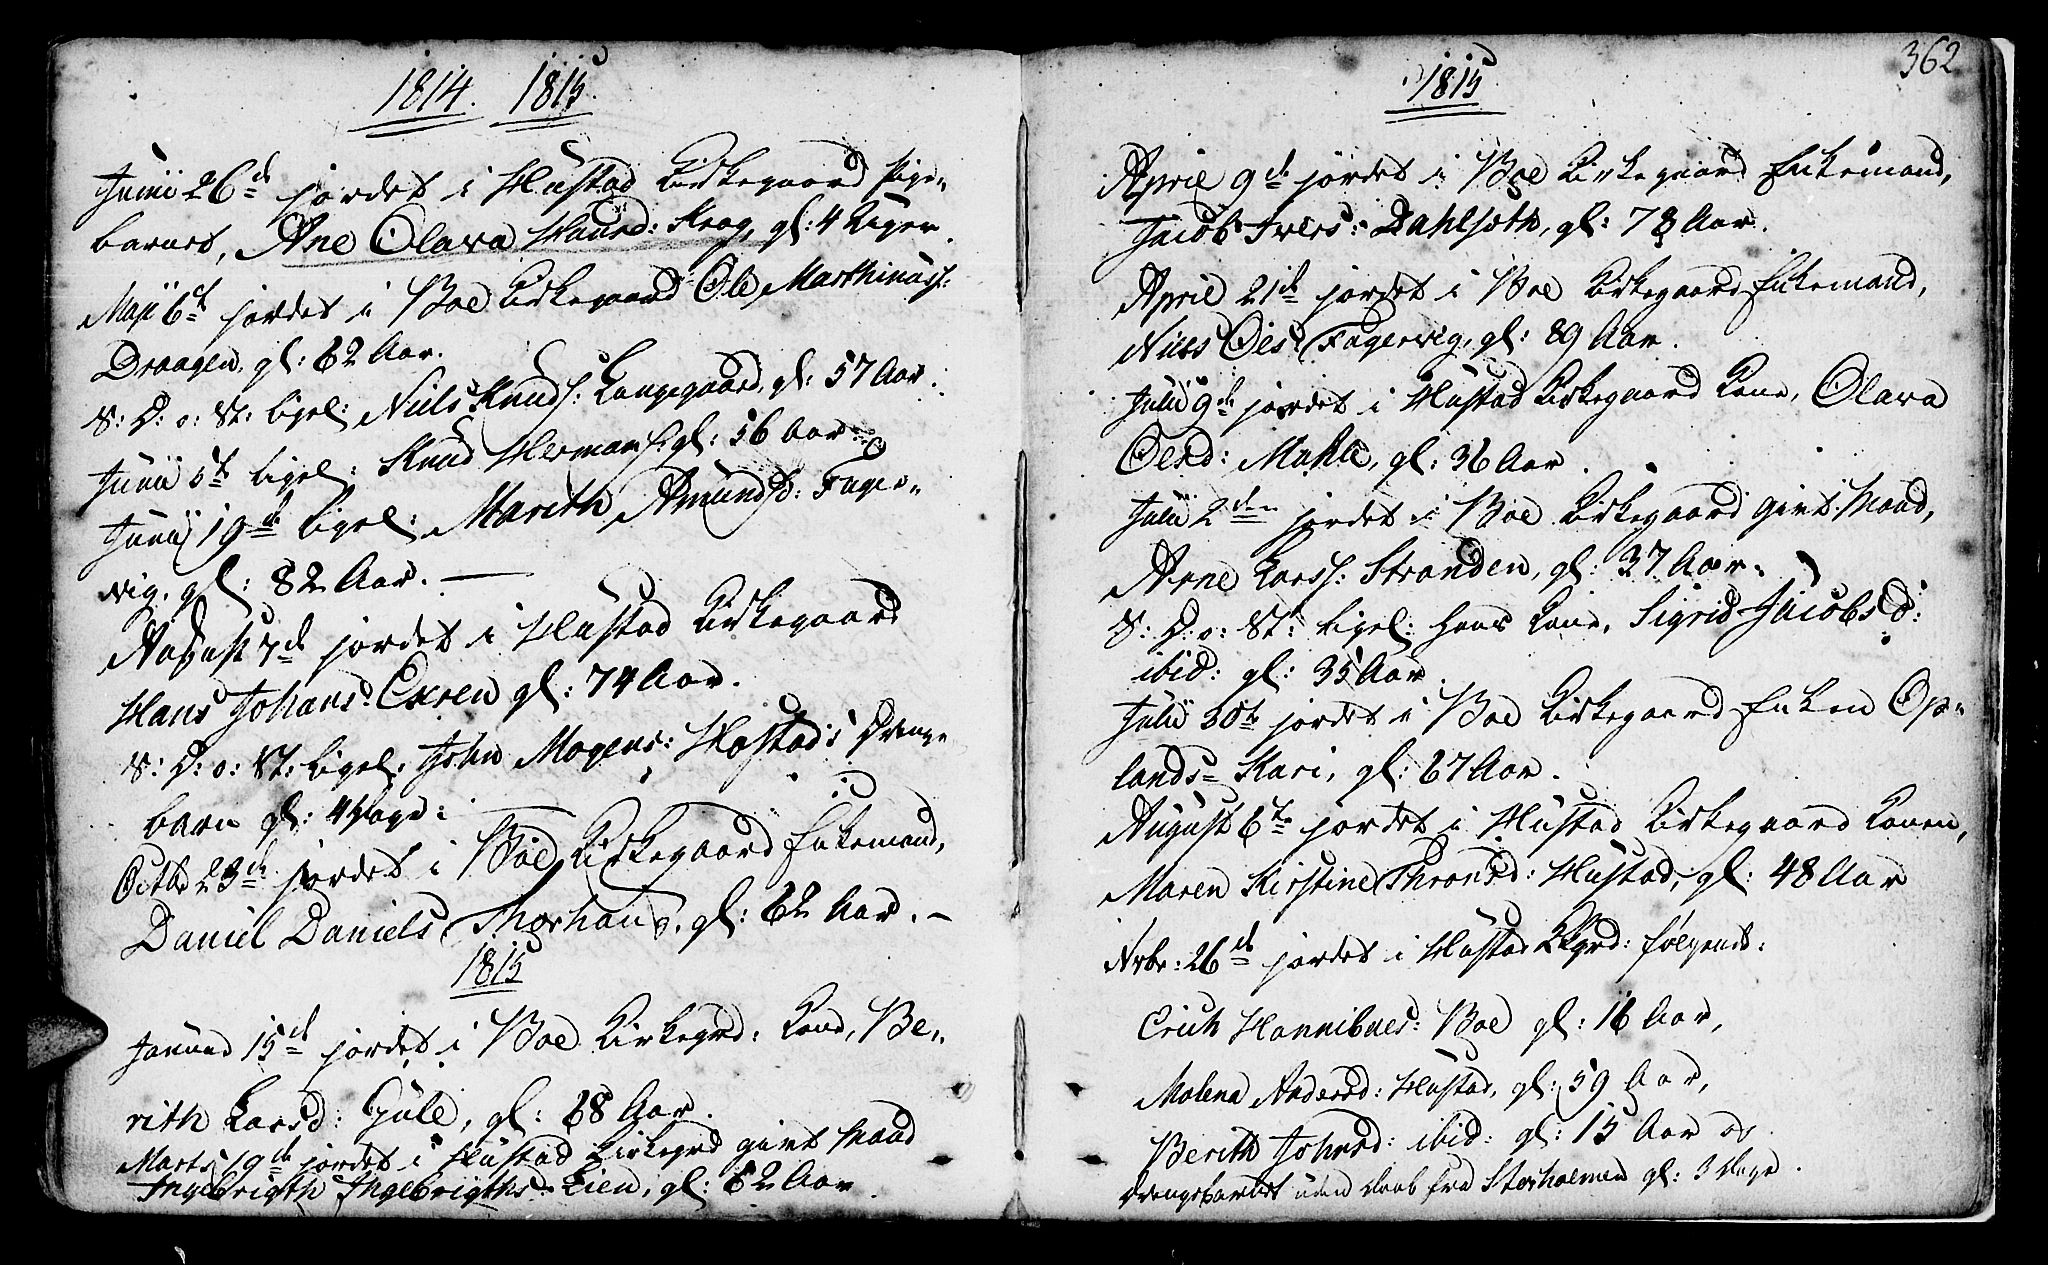 1814. 1815.
Junii 26de jordet i Hustad Kirkegaard Pige-
barnet, Ane Olava Haurd: Krog, gl: 4 Uger.
Maji 6te jordet i Boe Kirkegaard Ole Marthinuss:
Draagen, gl: 62 Aar.
S: D: o: St: ligel: Niels Knuds: Langegaard, gl: 57 Aar.
Junii 5te ligel: Knud Hermans: gl: 56 Aar.
Junii 19de ligel: Marith Amundsd: Fager-
vig, gl: 82 Aar.
August 7de jordet i Hustad Kirkegaard
Hans Johans: Exren gl: 74 Aar.
S: D: o: St: ligel: John Mogens: Hostads Drenge
barn gl: 4 Dage:
Octbr 23de jordet i Boe Kirkegaard Enkemand,
Daniel Daniels Thorhaus, gl: 62 Aar.
1815
Januar 15de jordet i Boe Kirkegrd: Kone, Be-
rith Larsd: Gule, gl: 68 Aar.
Marts 19de jordet i Hustad Kirkegrd givt Mand
Ingebrigth Ingebrigths: Lien, gl: 62 Aar.
362
1815
April 9de jordet i Boe Kirkegaard Enkemand,
Jacob Ivers: Dahlsæth, gl: 78 Aar.
April 21de jordet i Boe Kirkegaard Enkemand,
Niels Ols: Fagervig, gl: 89 Aar.
Julii 9de jordet i Hustad Kirkegaard Kone, Olava
Olsd: Mahle, gl: 36 Aar.
Julii 2den jordet i Boe Kirkegaard givt Mand,
Arne Larss: Stranden, gl: 37 Aar.
S: D: o: St: ligel: hans Kone, Sigrid Jacobsd:
ibid: gl: 35 Aar.
Julii 30te jordet i Boe Kirkegaard Enken Op-
lands- Kari, gl: 67 Aar.
August 6te jordet i Hustad Kirkegaard Konen,
Maren Kirstine Thronsd: Hustad, gl: 48 Aar
Nvbr: 26de jordet i Hustad Kkgrd: følgende:
Erich Hannibals: Boe gl: 16 Aar,
Malena Andersd: Hustad, gl: 59 Aar,
Berith Johnsd: ibid: gl: 15 Aar og
Drengebarnet uden Daab fra Storholmen gl: 3 Dage.